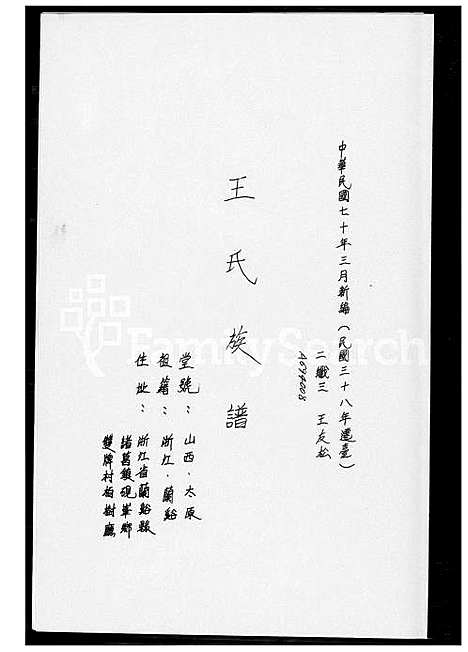 中華民國七十年三月新編(民國三十八年遷臺)
二纖三 王友松
A674008
王氏族譜
堂號：山西．太原
祖籍：浙江．蘭谿
住址：浙江省蘭谿縣
諸葛鎮硯峯鄉
雙牌村柏樹廳
FamilySearch